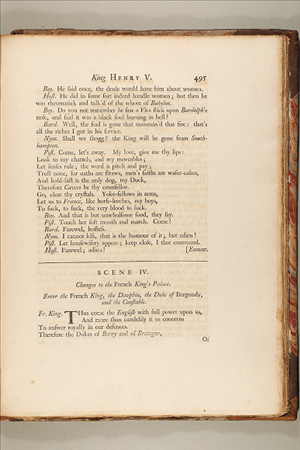 King HENRY V. 495
Boy. He said once, the deule would have him about women.
Host. He did in some sort indeed handle women; but then he
was rheumatick and talk'd of the whore of Babylon.
Boy. Do you not remember he saw a Flea stick upon Bardolph's
nose, and said it was a black soul burning in hell?
Bard. Well, the fuel is gone that maintain'd that fire: that's
all the riches I got in his service.
Nym. Shall we shogg? the King will be gone from South-
hampton.
Pist. Come, let's away. My love, give me thy lips:
Look to my chattels, and my moveables;
Let senses rule; the word is pitch and pay;
Trust none, for oaths are straws, men's faiths are wafer-cakes,
And hold-fast is the only dog, my Duck,
Therefore Caveto be thy counsellor.
Go, clear thy crystals. Yoke-fellows in arms,
Let us to France, like horse-leeches, my boys,
To suck, to suck, the very blood to suck.
Boy. And that is but unwholsome food, they say.
Pist. Touch her soft mouth and march. Come!
Bard. Farewel, hostess.
Nym. I cannot kiss, that is the humour of it; but adieu!
Pist. Let houswifery appear; keep close, I thee command.
Host. Farewel; adieu! [Exeunt.
SCENE IV.
Changes to the French King's Palace.
Enter the French King, the Dauphin, the Duke of Burgundy,
and the Constable.
Fr. King. THus come the English with full power upon us,
And more than carefully it us concerns
To answer royally in our defences.
Therefore the Dukes of Berry and of Bretagne,
Of